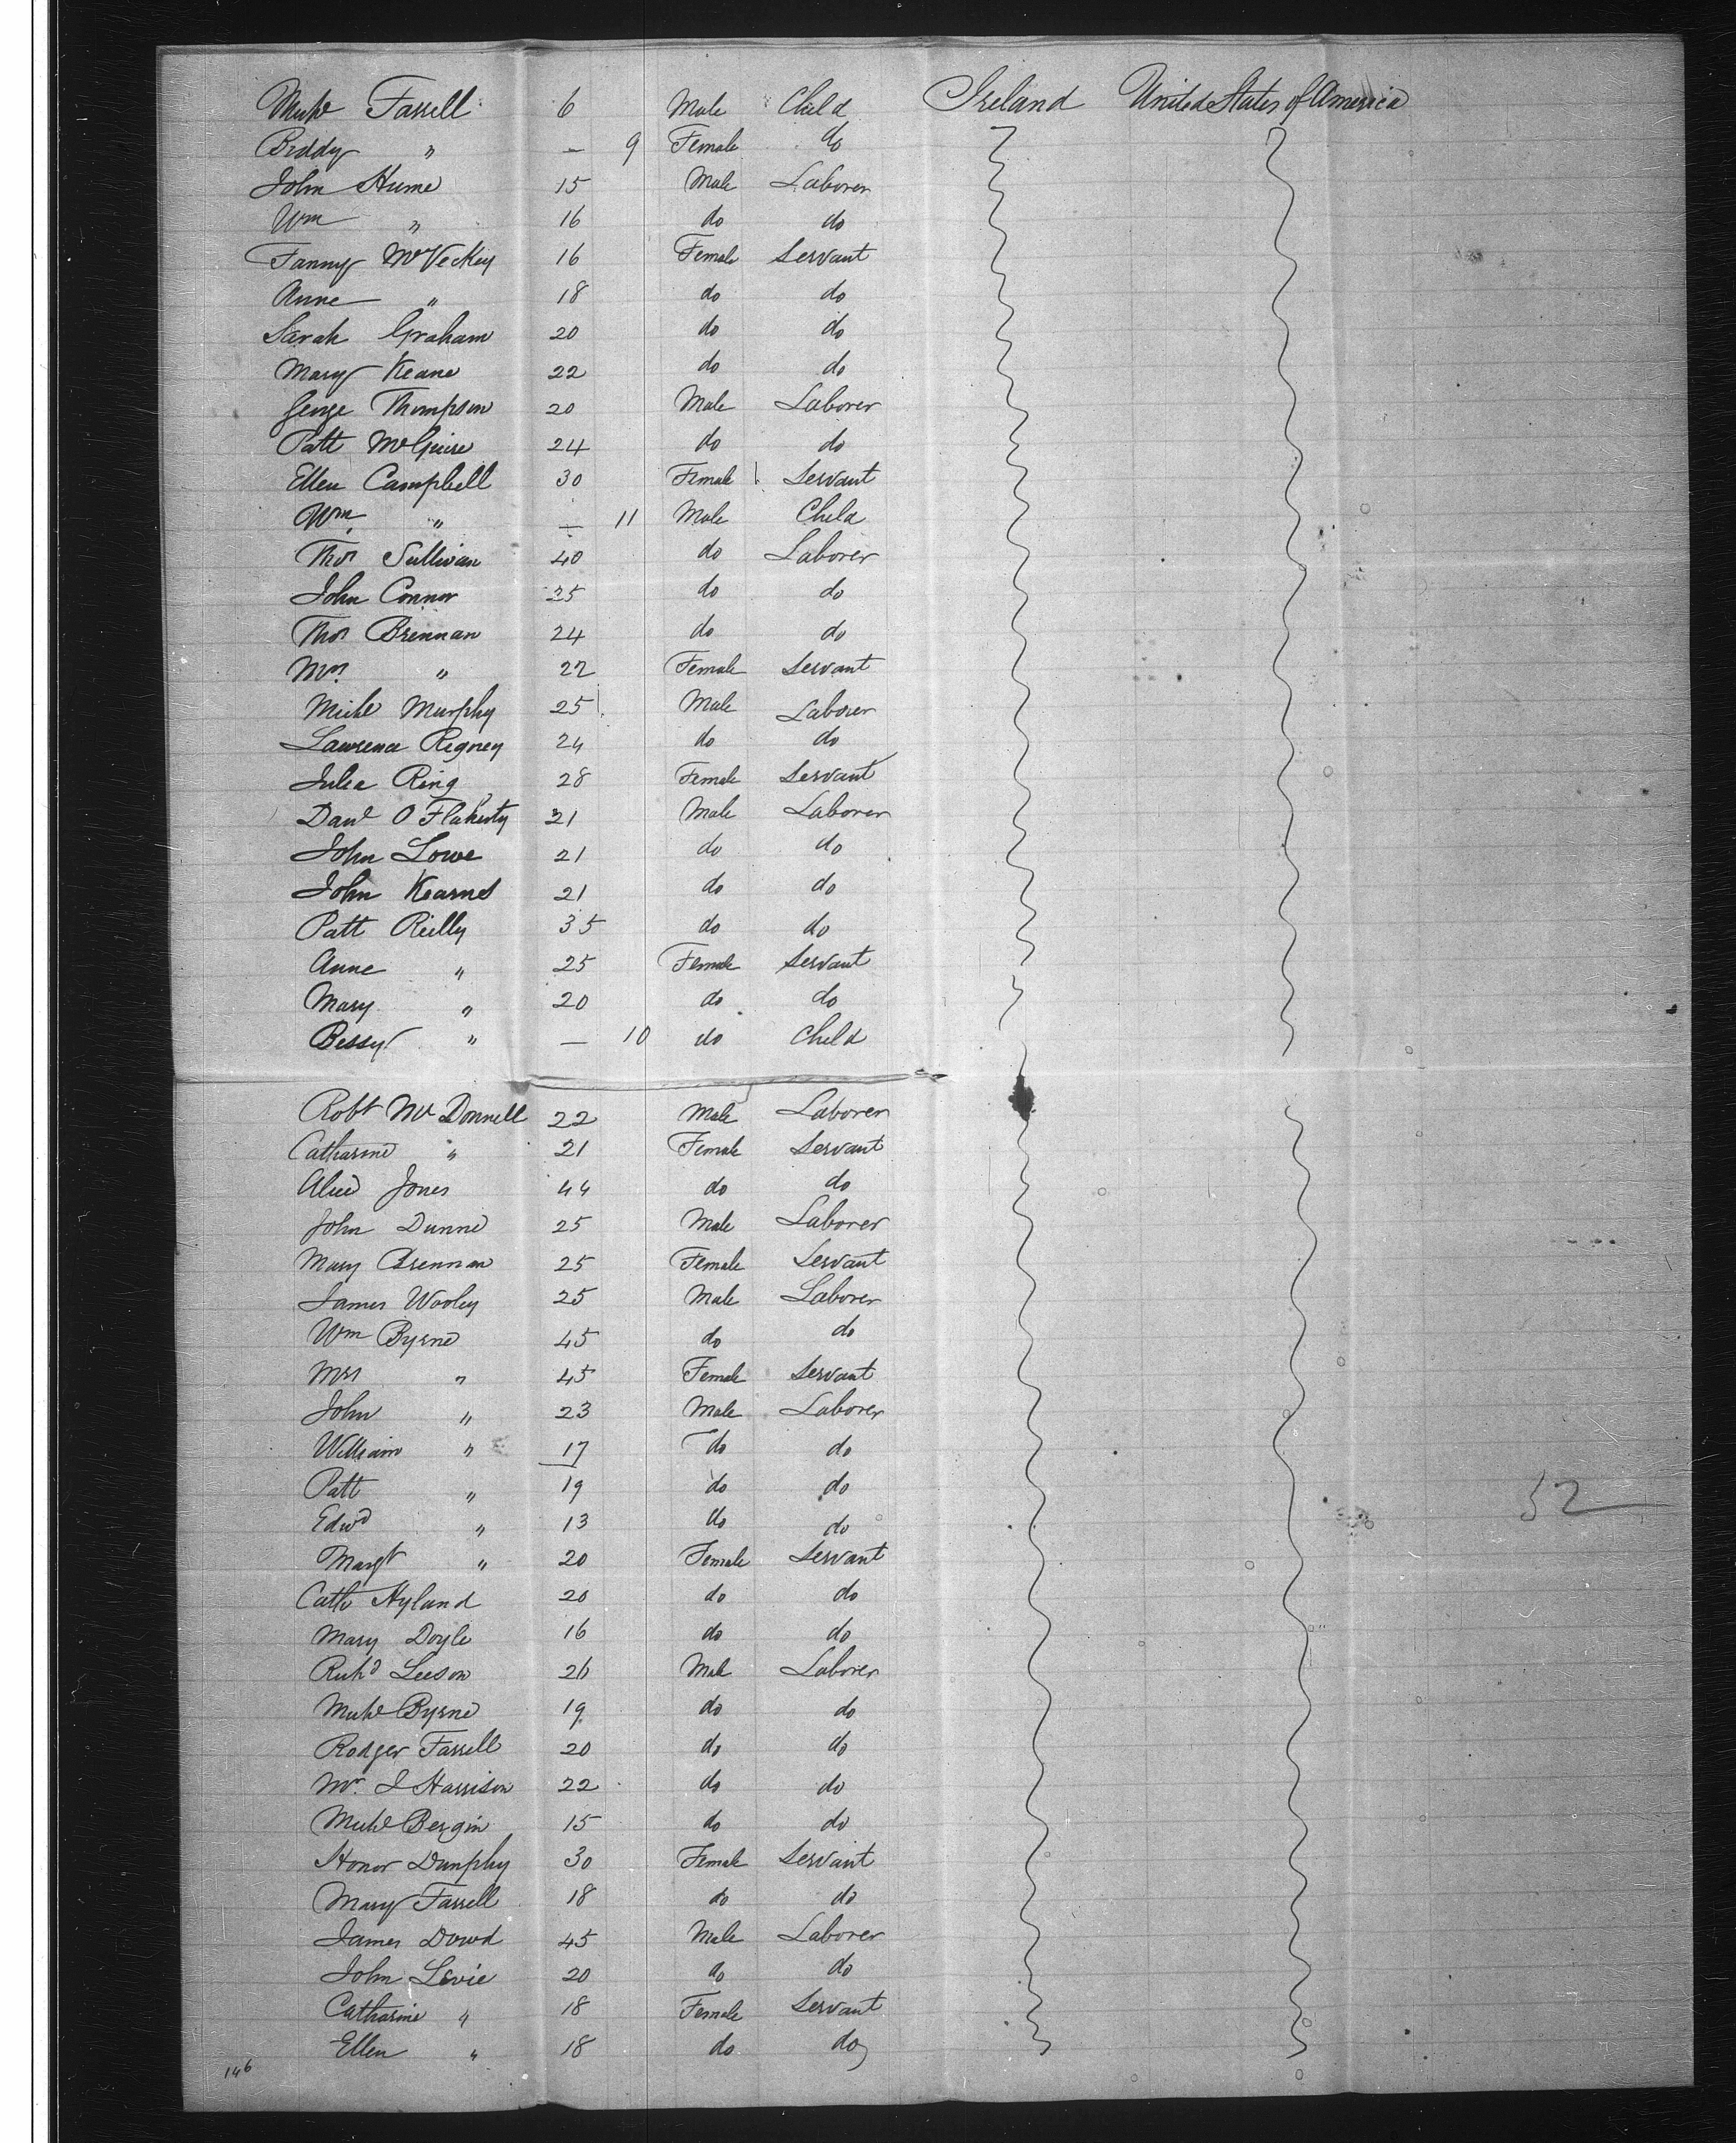 Michl Farrell 6 Male Child Ireland United States of America
Biddy " — 9 Female do
John Hume 15 Male Laborer
Wm " 16 do do
Fanny McVeckey 16 Female Servant
Anne " 18 do do
Sarah Graham 20 do do
Mary Keane 22 do do
George Thompson 20 Male Laborer
Patt McGuire 24 do do
Ellen Campbell 30 Female Servant
Wm " — 11 Male Child
Thos Sullivan 40 do Laborer
John Connor 25 do do
Thos Brennan 24 do do
Mrs " 22 Female Servant
Michl Murphy 25 Male Laborer
Lawrence Regney 24 do do
Julia Ring 28 Female Servant
Danl O'Flaherty 21 Male Laborer
John Lowe 21 do do
John Kearns 21 do do
Patt Reilly 35 do do
Anne " 25 Female Servant
Mary " 20 do do
Bessy " — 10 do Child
Robt McDonnell 22 Male Laborer
Catharine " 21 Female Servant
Alice Jones 44 do do
John Dunne 25 Male Laborer
Mary Brennan 25 Female Servant
James Wooley 25 Male Laborer
Wm Byrne 45 do do
Mrs " 45 Female Servant
John " 23 Male Laborer
William " 17 do do
Patt " 19 do do
52
Edwd " 13 do do
Margt " 20 Female Servant
Cath Hyland 20 do do
Mary Doyle 16 do do
Richd Leeson 26 Male Laborer
Michl Byrne 19 do do
Rodger Farrell 20 do do
Mr. J Harrison 22 do do
Michl Bergin 15 do do
Honor Dunphy 30 Female Servant
Mary Farrell 18 do do
James Dowd 45 Male Laborer
John Levie 20 do do
Catharine " 18 Female Servant
Ellen " 18 do do
146